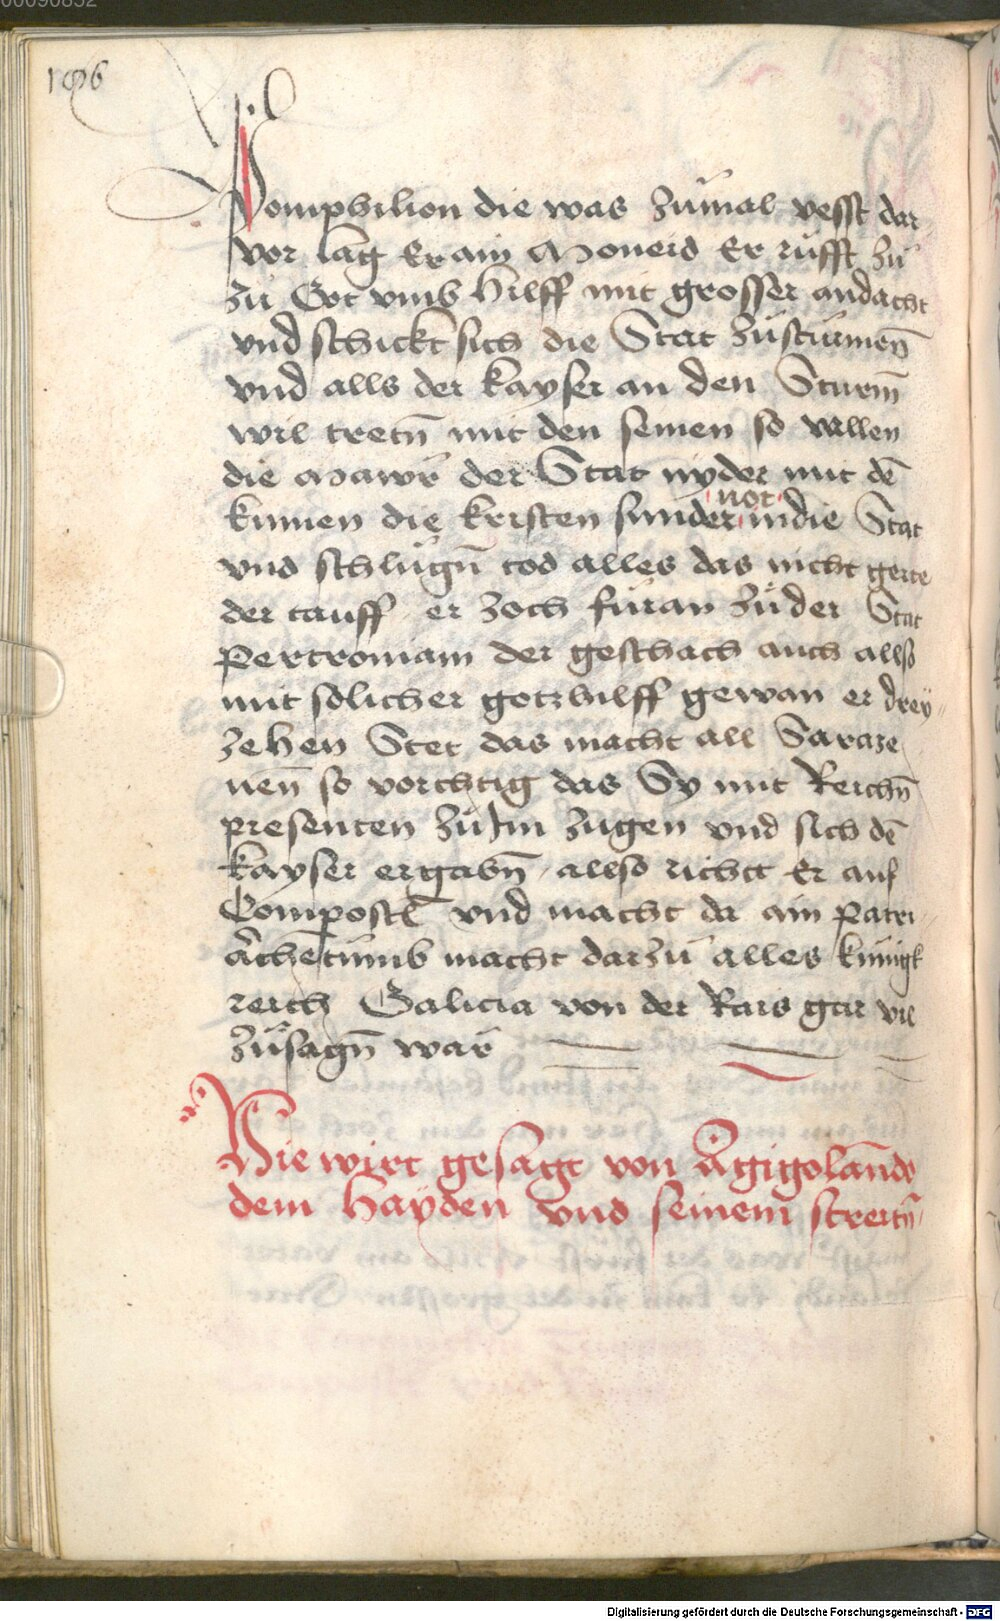 00090852
196
Pomphilion die was zůmal vesst dar
vor lag Er ain Moneid Er růfft zů
zů Got vmb Hilff mit grosser andacht
vnd schickt sich die Stat zůstürmen̄
vnd alls der kayser an den Sturm̄
wil tretn̄ mit den seinen so vallen
die Mawr̄ der Stat nyder mit dē
kumen die kristen sunder not in die Stat
vnd schlůgn̄ tod alles das nicht gerte
der tauff er zoch füran zů der Stat
Pertroniam der geschach auch allso
mit solicher gotzhilff gewan er drey
zehen Stet das macht all Saraze
nen̄ so vorchtig das Sy mit Reichn̄
presenten zů Im zugen vnd sich dē
kayser ergabn̄ allso richt Er auf
Compostel vnd macht da ain Patri
archentůmb macht darzů alles künigk
reich Galicia von der Rais gar vil
zůsagn̄ war̄
Hie wirt gesagt von Agigolando
dem Hayden vnd seinem streitn̄
Digitalisierung gefördert durch die Deutsche Forschungsgemeinschaft - DFG